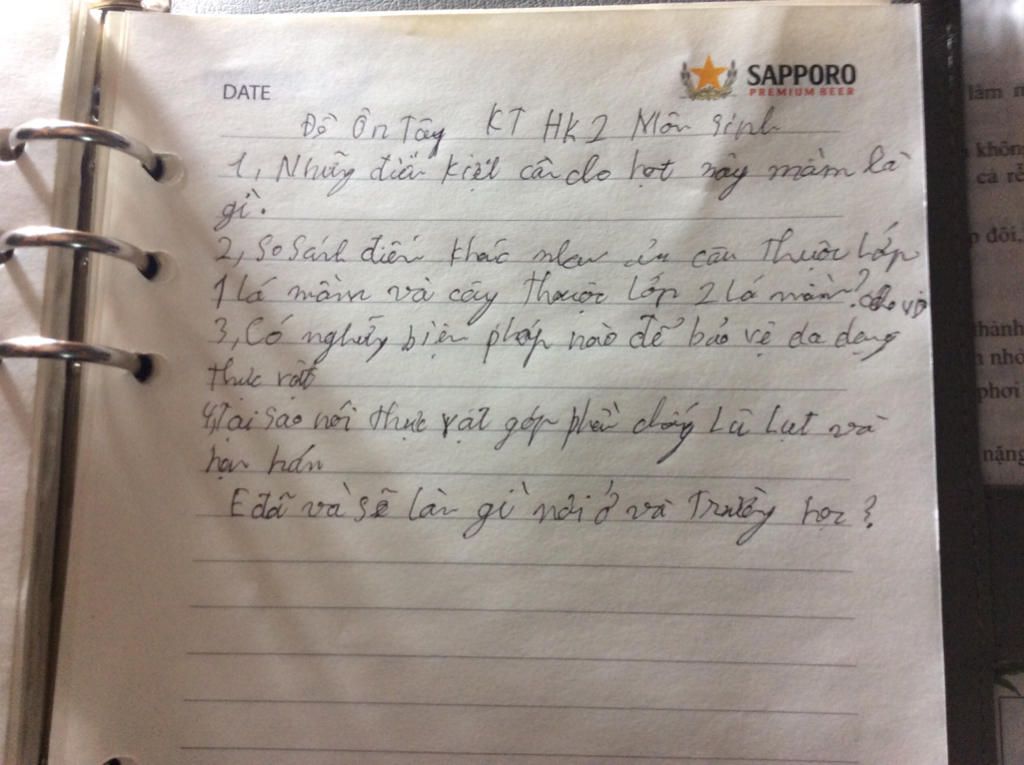 DATE
SAPPORO
PREMIUM BEER
Đề Ôn Tây KT HK2 Môn Sinh
1, Những điều kiệt cần cho hạt nảy mầm là
gì.
2, So Sánh điến khác nhau của cây thuộc lớp
1 lá mầm và cây thuộc lớp 2 lá mầm? cho vd
3, Có nghững biện pháp nào để bảo vệ đa dạng
thực vật
4, Tại sao nói thực vật góp phần chống Lũ Lụt và
hạn hán
E đã và sẽ làn gì nơi ở và Trường học?
làm
không
cả rễ
đôi,
thành
nhỏ
phơi
nặng